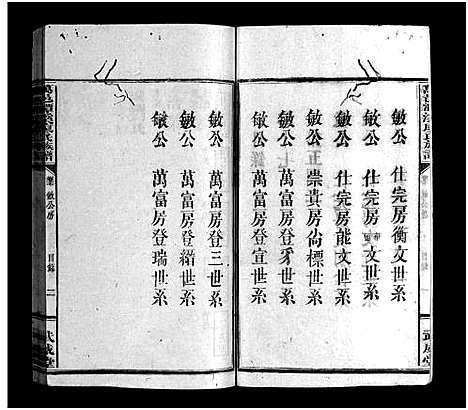 敏公 仕完房衡文世系
敏公 仕完房文世系
敏公 仕完房能文世系
敏公 正崇貴房尚標世系
敏公 萬富房登牙世系
敏公 萬富房登宜世系
敏公 萬富房登三世系
敏公 萬富房登縉世系
敏公 萬富房登瑞世系
敏公房
目錄
二
武成堂
武成堂